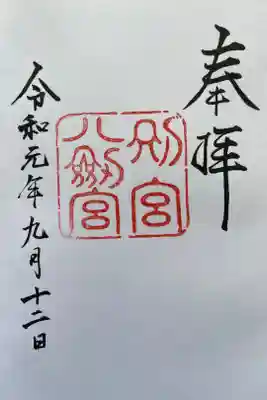 奉拝
別宮
八劔宮
令和元年九月十二日